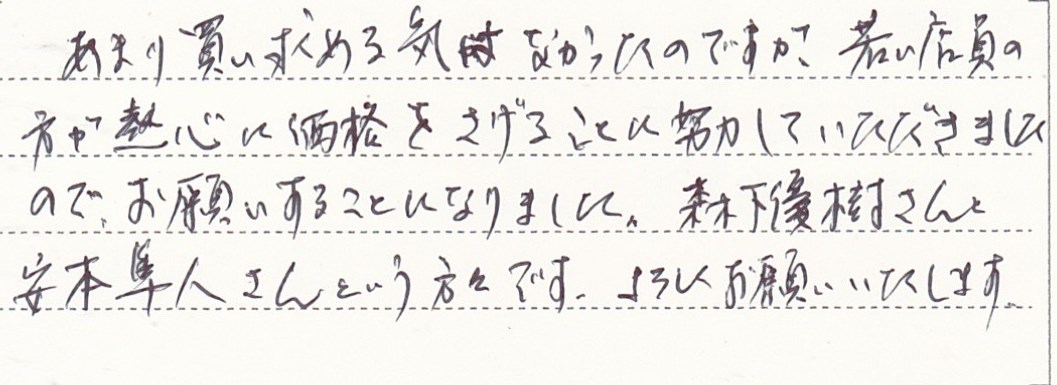 あまり買い求める気はなかったのですが、若い店員の
方が熱心に価格をさげることに努力していただきました
ので、お願いすることになりました。森下優樹さんと
安本隼人さんという方々です。よろしくお願いいたします。